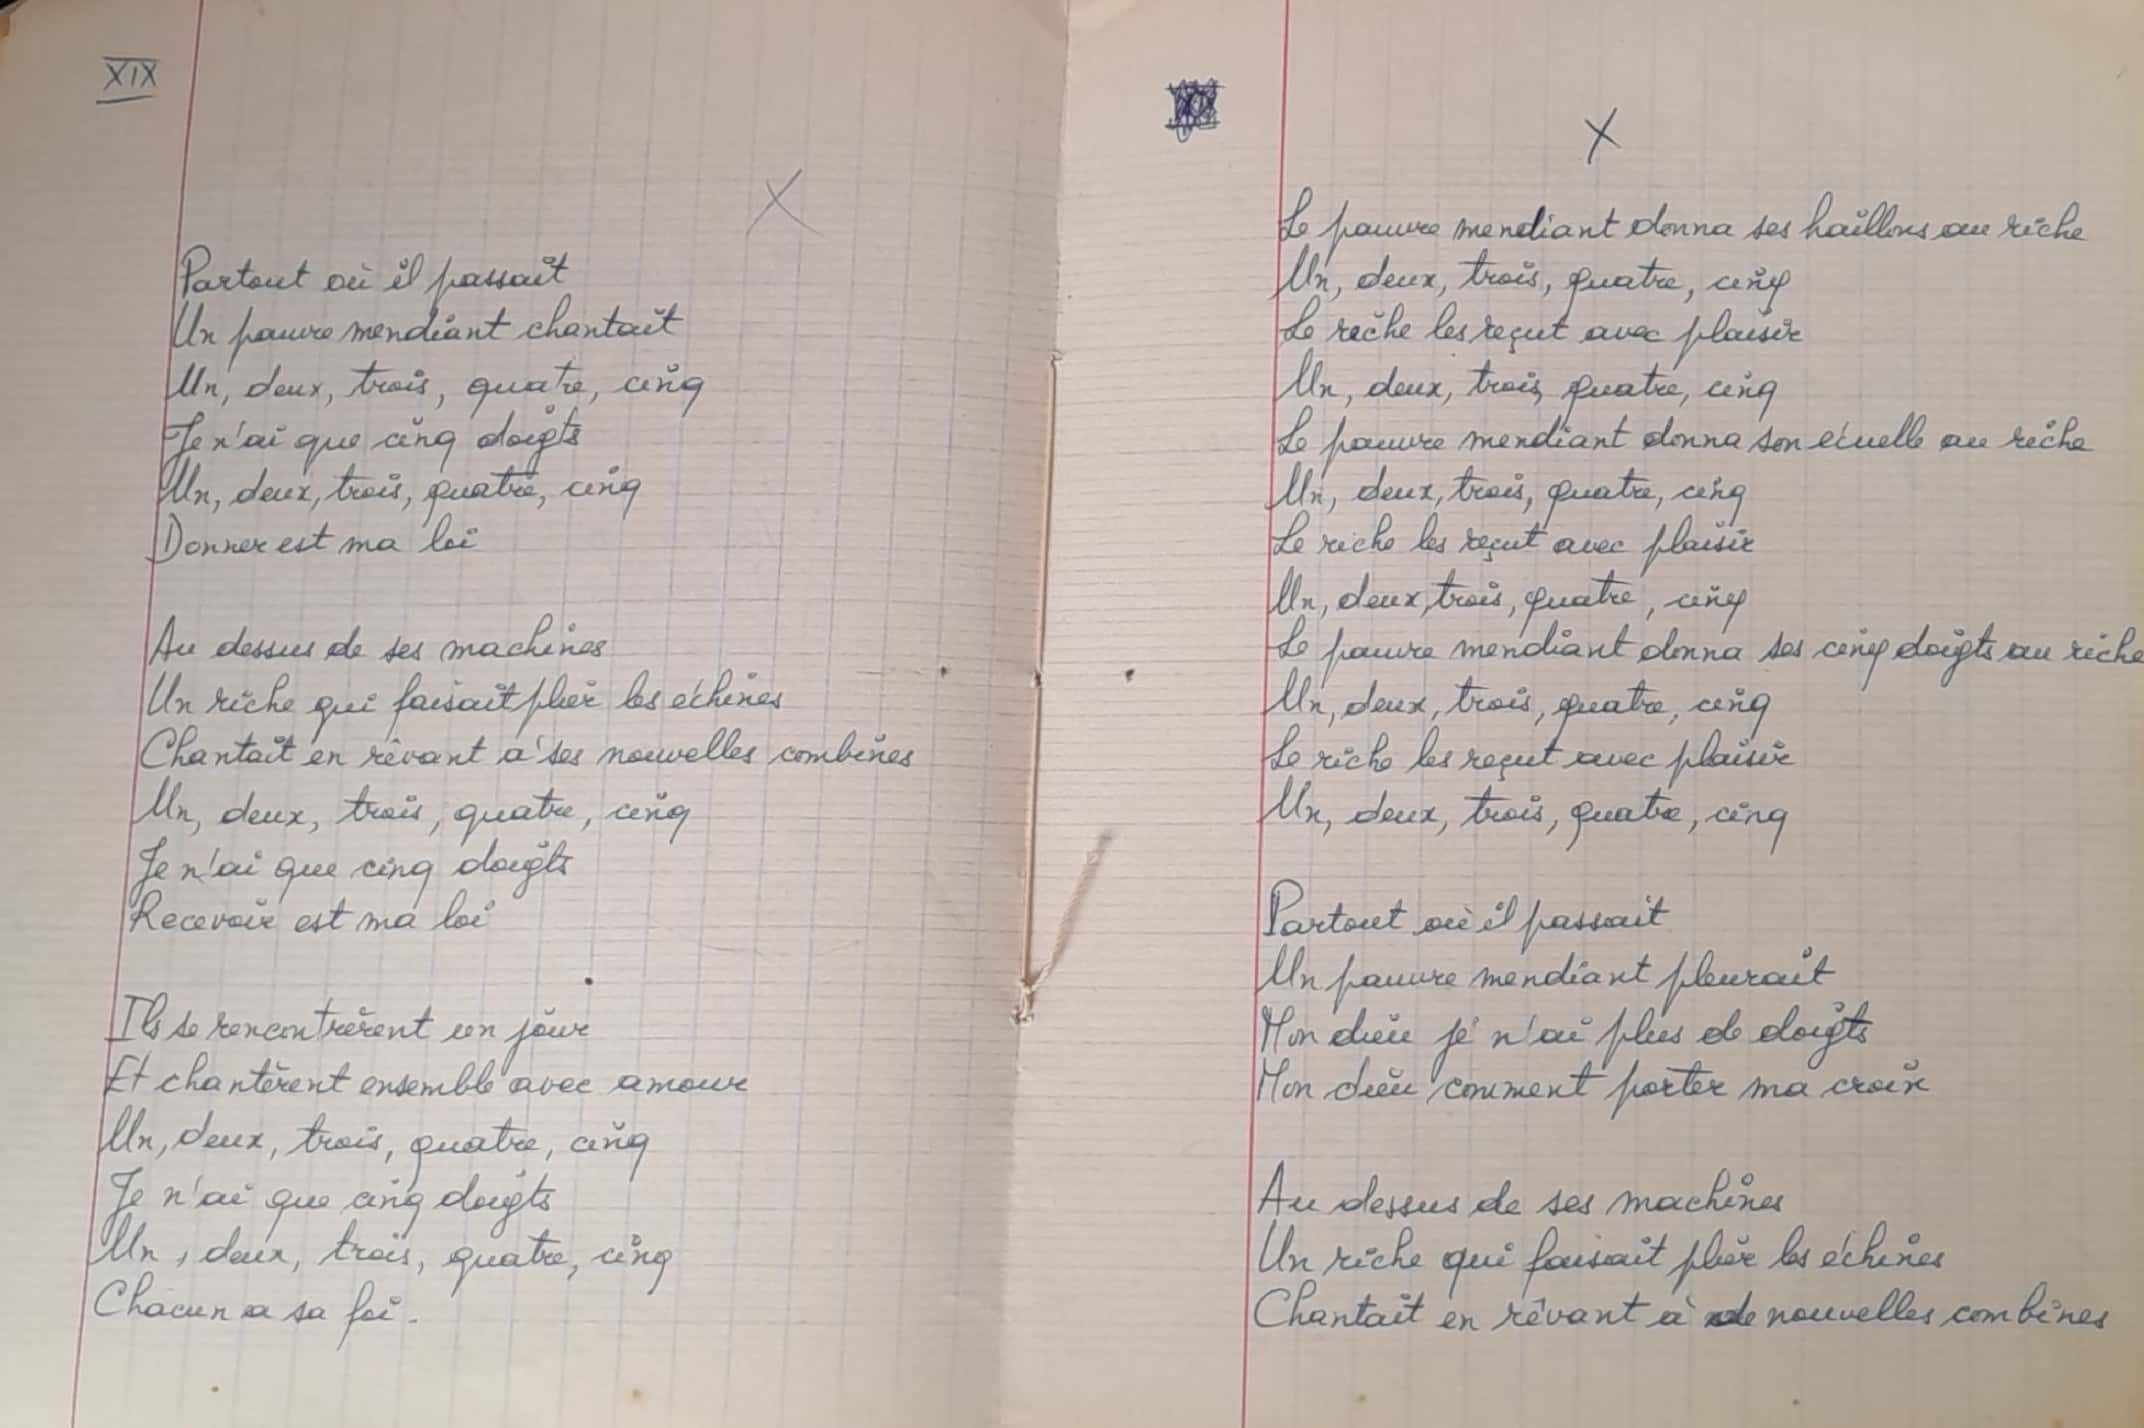 XIX
X
Partout où il passait
Un pauvre mendiant chantait
Un, deux, trois, quatre, cinq
Je n'ai que cinq doigts
Un, deux, trois, quatre, cinq
Donner est ma loi
Au dessus de ses machines
Un riche qui faisait plier les échines
Chantait en rêvant à ses nouvelles combines
Un, deux, trois, quatre, cinq
Je n'ai que cinq doigts
Recevoir est ma loi
Ils se rencontrèrent un jour
Et chantèrent ensemble avec amour
Un, deux, trois, quatre, cinq
Je n'ai que cinq doigts
Un, deux, trois, quatre, cinq
Chacun a sa foi.
X
Le pauvre mendiant donna ses haillons au riche
Un, deux, trois, quatre, cinq
Le riche les reçut avec plaisir
Un, deux, trois, quatre, cinq
Le pauvre mendiant donna son écuelle au riche
Un, deux, trois, quatre, cinq
Le riche les reçut avec plaisir
Un, deux, trois, quatre, cinq
Le pauvre mendiant donna ses cinq doigts au riche
Un, deux, trois, quatre, cinq
Le riche les reçut avec plaisir
Un, deux, trois, quatre, cinq
Partout où il passait
Un pauvre mendiant pleurait
Mon dieu je n'ai plus de doigts
Mon dieu comment porter ma croix
Au dessus de ses machines
Un riche qui faisait plier les échines
Chantait en rêvant à de nouvelles combines